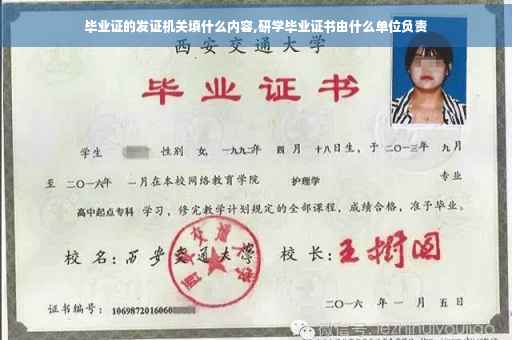 毕业证的发证机关填什么内容,研学毕业证书由什么单位负责
西安交通大学
毕业证书
学生 性别 女,一九九二年 四月 十八日生,于二〇一三年 九月
至 二〇一六年 一月在本校网络教育学院 护理学 专业
高中起点专科 学习,修完教学计划规定的全部课程,成绩合格,准予毕业。
校名:西安交通大学 校长:王树国
西安交通大学
二〇一六年一月五日
证书编号:1069872016060
微信号:jezhihuiyoujiao